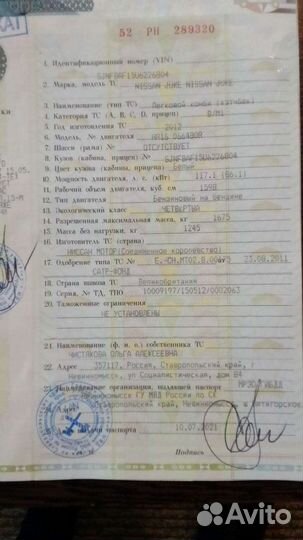 52 РН 289320
1. Идентификационный номер (VIN)
SJNFBAF15U6226804
2. Марка, модель ТС NISSAN JUKE NISSAN JUKE
3. Наименование (тип ТС) Легковой комби (хэтчбек)
4. Категория ТС (А, В, С, D, прицеп) B/M1
5. Год изготовления ТС 2012
6. Модель, № двигателя HR16 066480R
7. Шасси (рама) № ОТСУТСТВУЕТ
8. Кузов (кабина, прицеп) № SJNFBAF15U6226804
9. Цвет кузова (кабины, прицепа) Белый
10. Мощность двигателя, л. с. (кВт) 117.1 (86.1)
11. Рабочий объем двигателя, куб. см 1598
12. Тип двигателя Бензиновый на бензине
13. Экологический класс ЧЕТВЕРТЫЙ
14. Разрешенная максимальная масса, кг 1675
15. Масса без нагрузки, кг 1245
16. Изготовитель ТС (страна)
НИССАН МОТОР(Соединенное королевство)
17. Одобрение типа ТС № 23.08.2011
САТР-ФОНД
18. Страна вывоза ТС Великобритания
19. Серия, № ТД, ТПО 10009197/150512/0002063
20. Таможенные ограничения
НЕ УСТАНОВЛЕНЫ
21. Наименование (ф. и. о.) собственника ТС
ЧИСТЯКОВА ОЛЬГА АЛЕКСЕЕВНА
22. Адрес 357117, Россия, Ставропольский край, г
Невинномысск, ул Социалистическая, дом
23. Наименование организации, выдавшей паспорт МРЭО ГИБДД
Невинномысск ГУ МВД России по СК
24. Адрес
Ставропольский край, Невинномысск,
паспорта 10.07.2021
Подпись
Avito